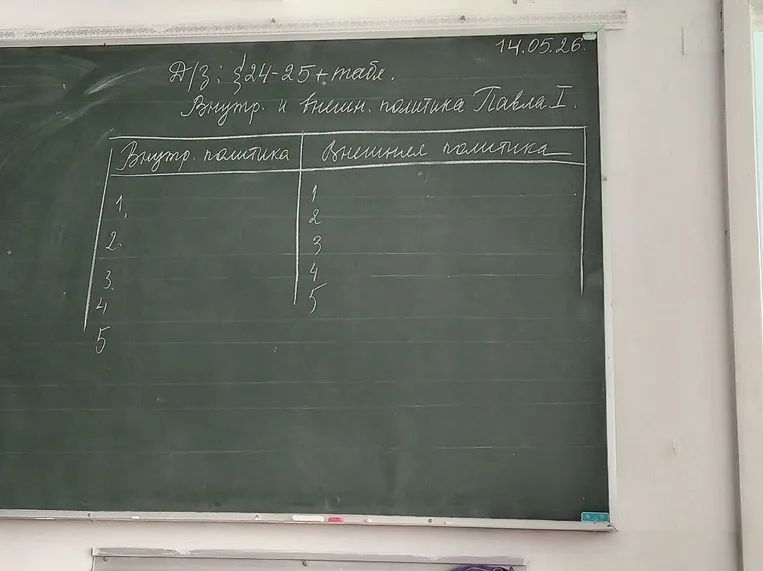 14.05.26.
Д/З: §24-25 + табл.
Внутр. и внешн. политика Павла I.
Внутр. политика Внешняя политика
1. 1
2. 2
3. 3
4 4
5 5